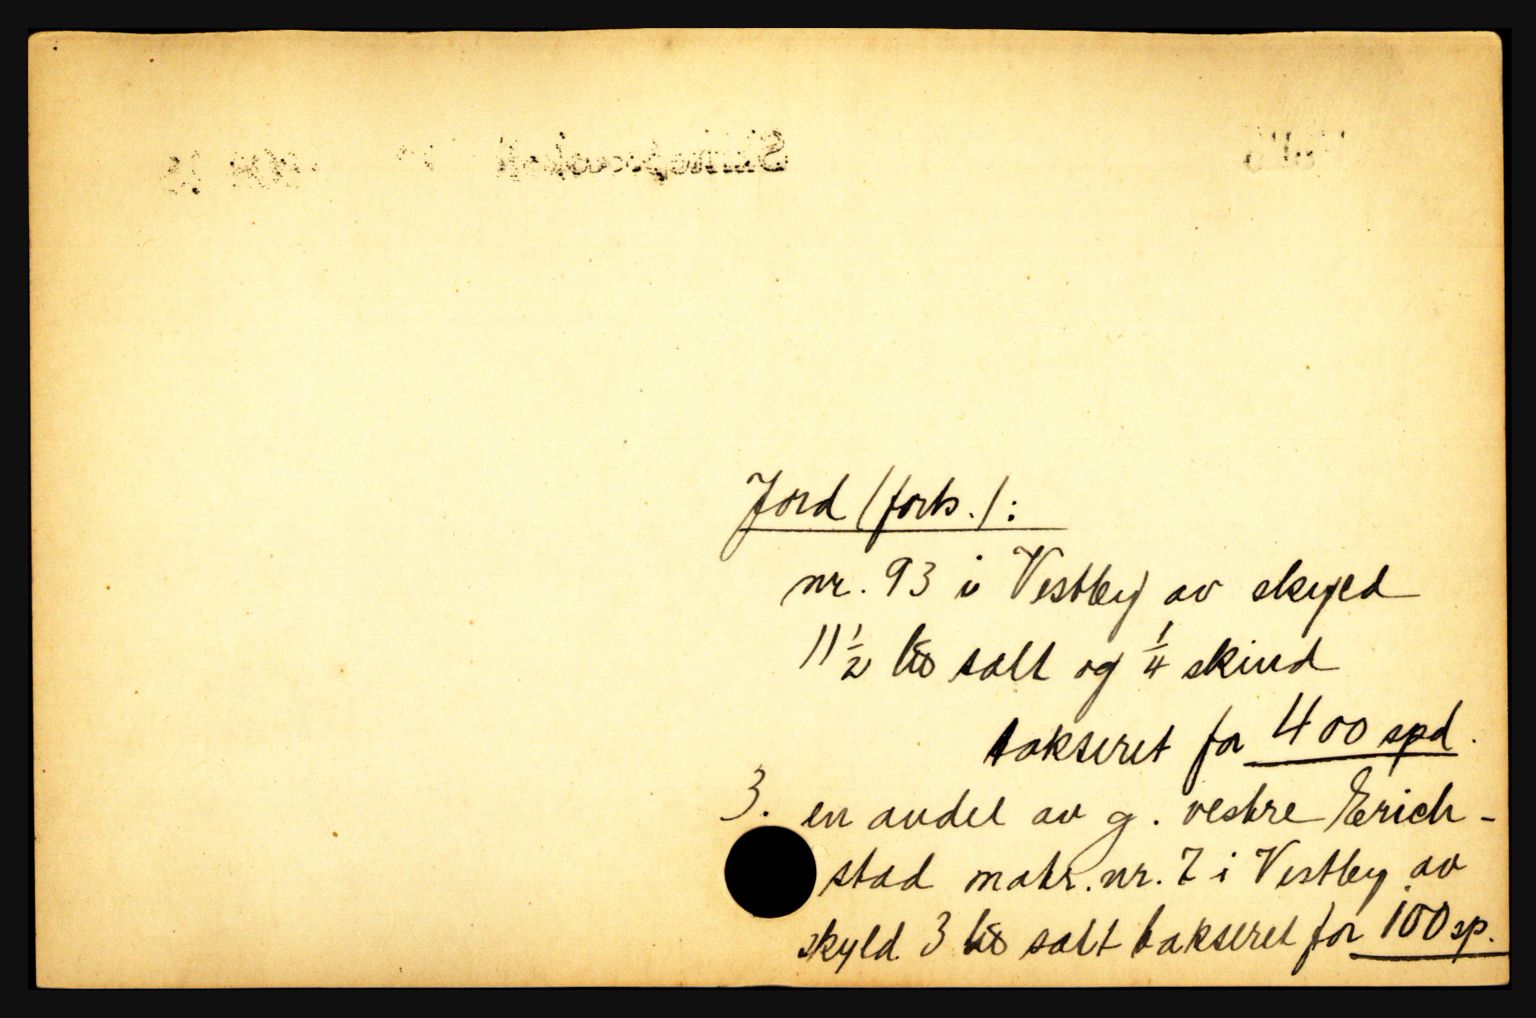 Jord (forts.):
nr. 93 i Vestby av skyld
11 1/2 lis salt og 1/4 skind
takseret for 400 spd.
3. en andel av g. vestre Erich-
stad matr. nr. 7 i Vestby av
skyld 3 lis salt takseret for 100 sp.